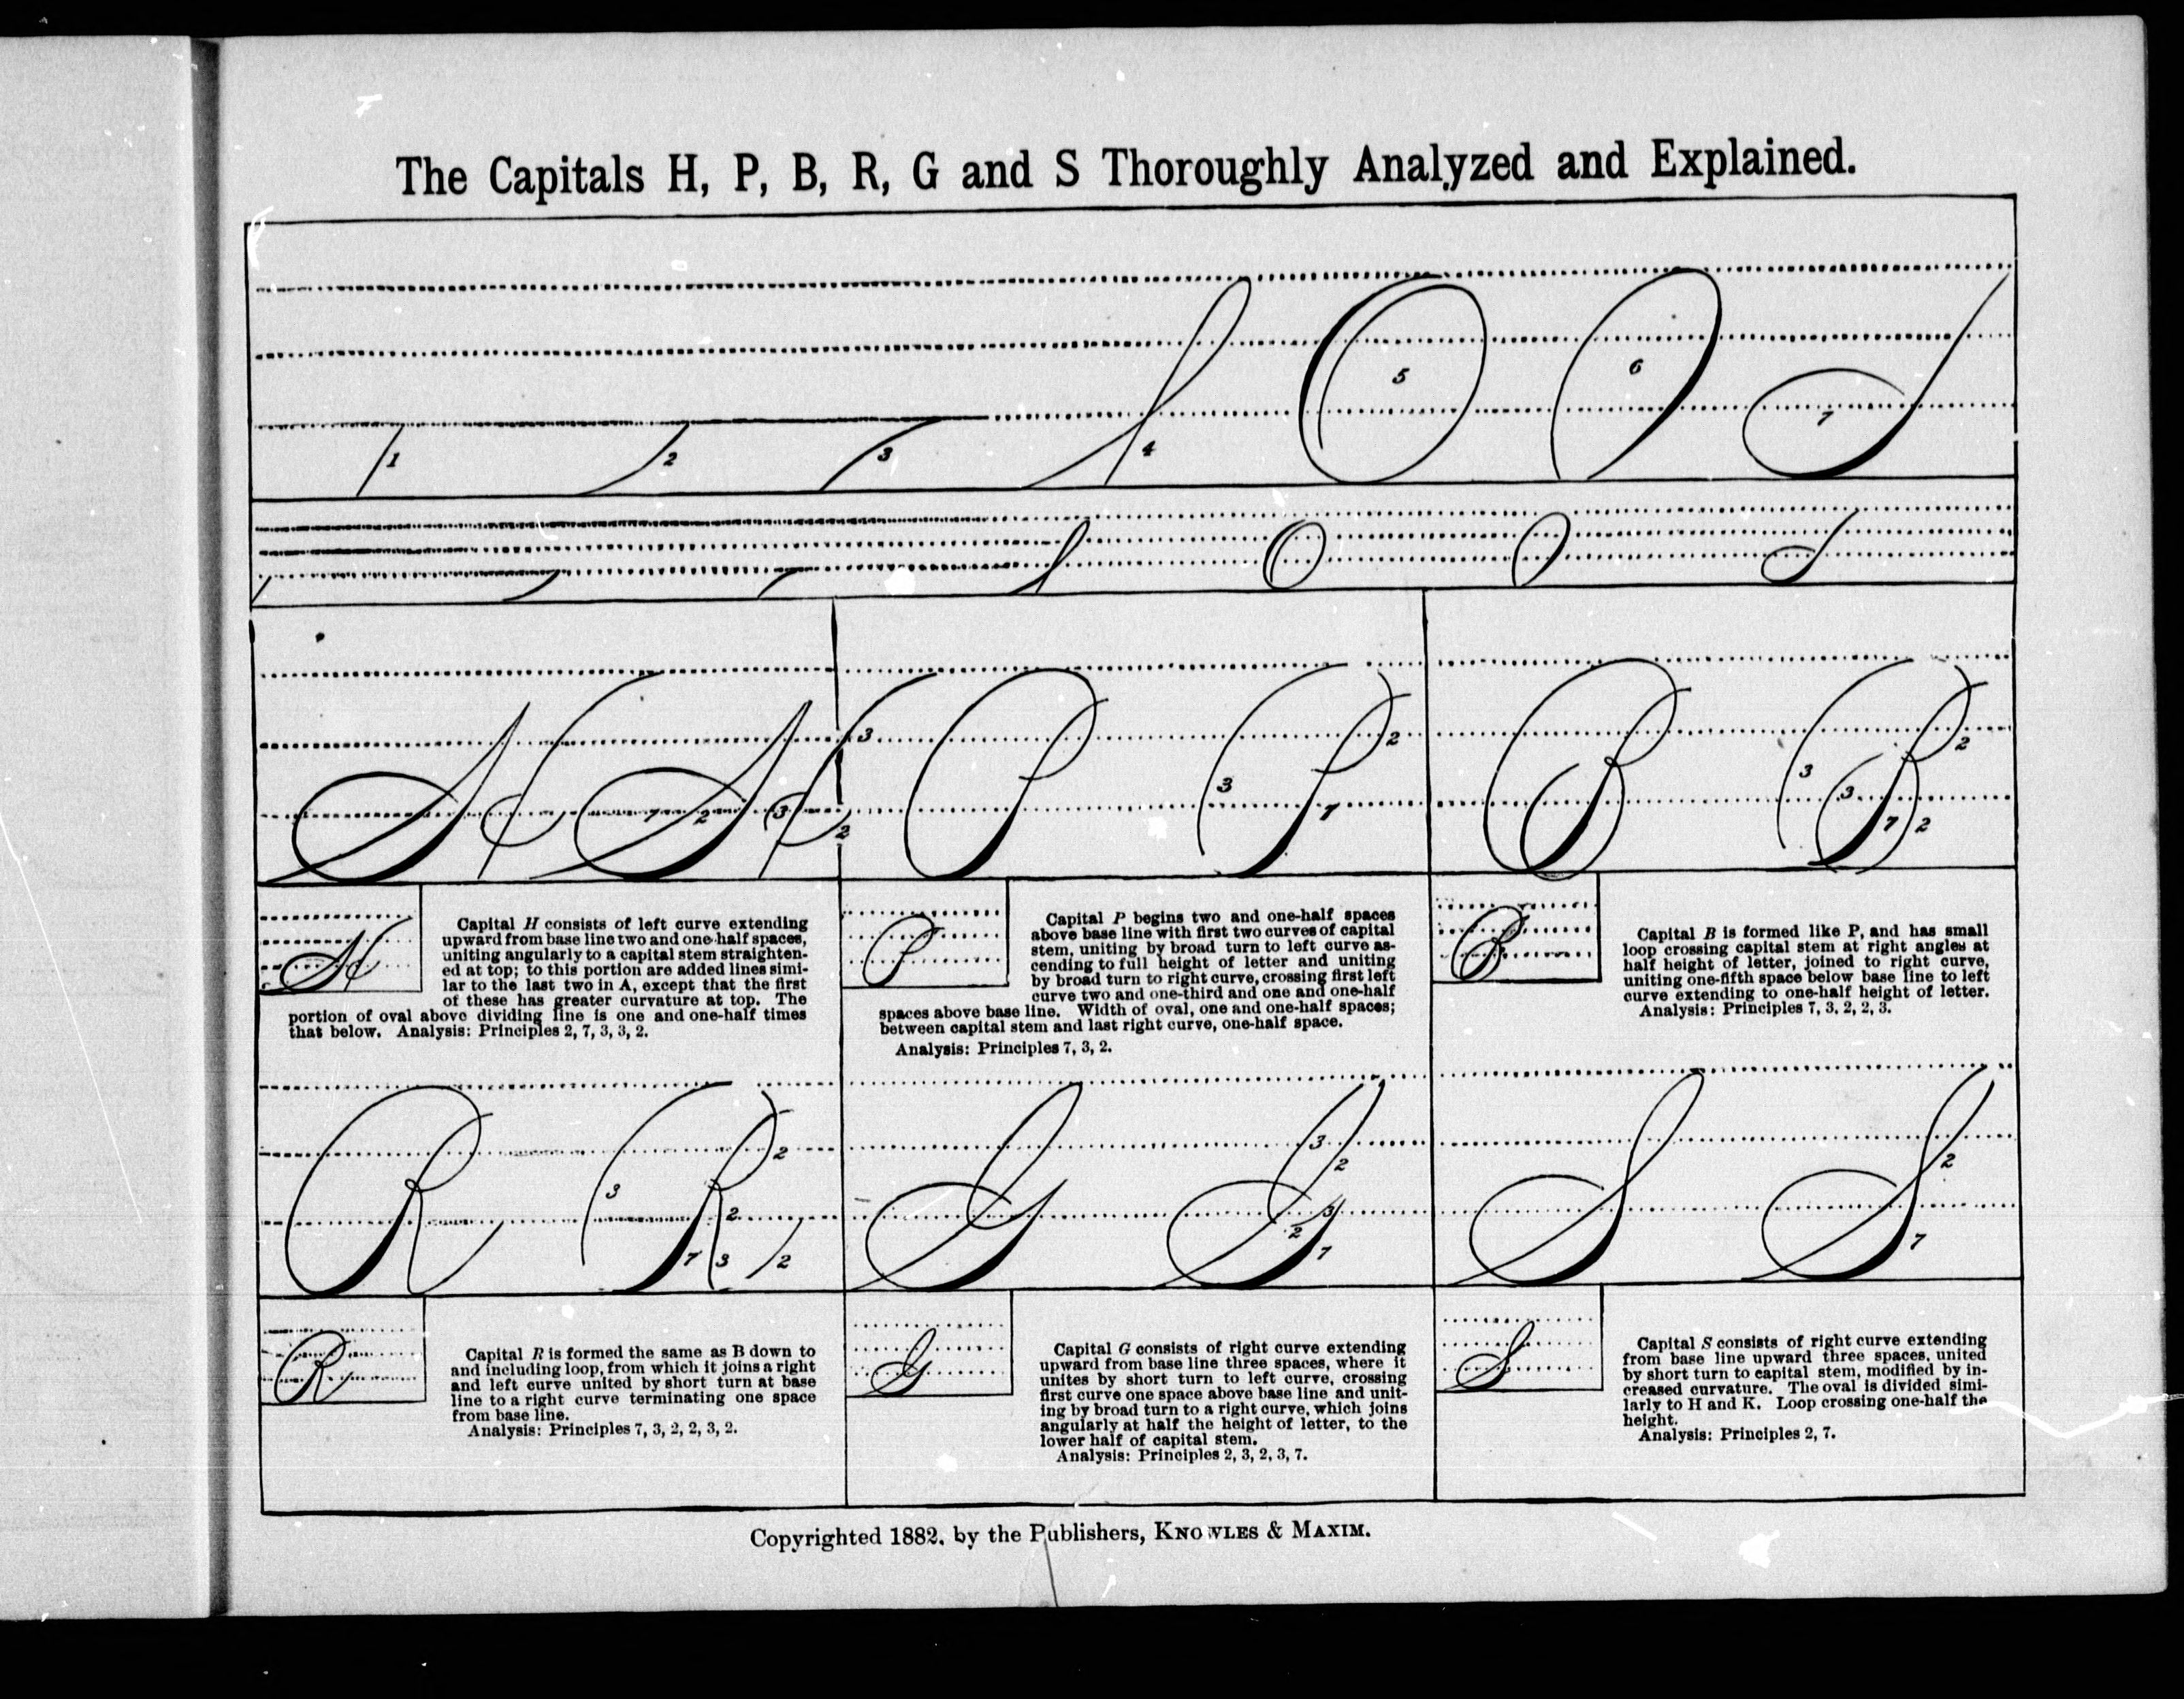 The Capitals H, P, B, R, G and S Thoroughly Analyzed and Explained.
1 2 3 4 5 6 7
7 2 3 3 2
3 7 2
3 2 3 7 2
Capital H consists of left curve extending
upward from base line two and one-half spaces,
uniting angularly to a capital stem straighten-
ed at top; to this portion are added lines simi-
lar to the last two in A, except that the first
of these has greater curvature at top. The
portion of oval above dividing line is one and one-half times
that below. Analysis: Principles 2, 7, 3, 3, 2.
Capital P begins two and one-half spaces
above base line with first two curves of capital
stem, uniting by broad turn to left curve as-
cending to full height of letter and uniting
by broad turn to right curve, crossing first left
curve two and one-third and one and one-half
spaces above base line. Width of oval, one and one-half spaces;
between capital stem and last right curve, one-half space.
Analysis: Principles 7, 3, 2.
Capital B is formed like P, and has small
loop crossing capital stem at right angles at
half height of letter, joined to right curve,
uniting one-fifth space below base line to left
curve extending to one-half height of letter.
Analysis: Principles 7, 3, 2, 2, 3.
R R 3 2 2 7 3 2
G G 3 2 3 2 7
S S 2 7
Capital R is formed the same as B down to
and including loop, from which it joins a right
and left curve united by short turn at base
line to a right curve terminating one space
from base line.
Analysis: Principles 7, 3, 2, 2, 3, 2.
Capital G consists of right curve extending
upward from base line three spaces, where it
unites by short turn to left curve, crossing
first curve one space above base line and unit-
ing by broad turn to a right curve, which joins
angularly at half the height of letter, to the
lower half of capital stem.
Analysis: Principles 2, 3, 2, 3, 7.
Capital S consists of right curve extending
from base line upward three spaces, united
by short turn to capital stem, modified by in-
creased curvature. The oval is divided simi-
larly to H and K. Loop crossing one-half the
height.
Analysis: Principles 2, 7.
Copyrighted 1882, by the Publishers, KNOWLES & MAXIM.